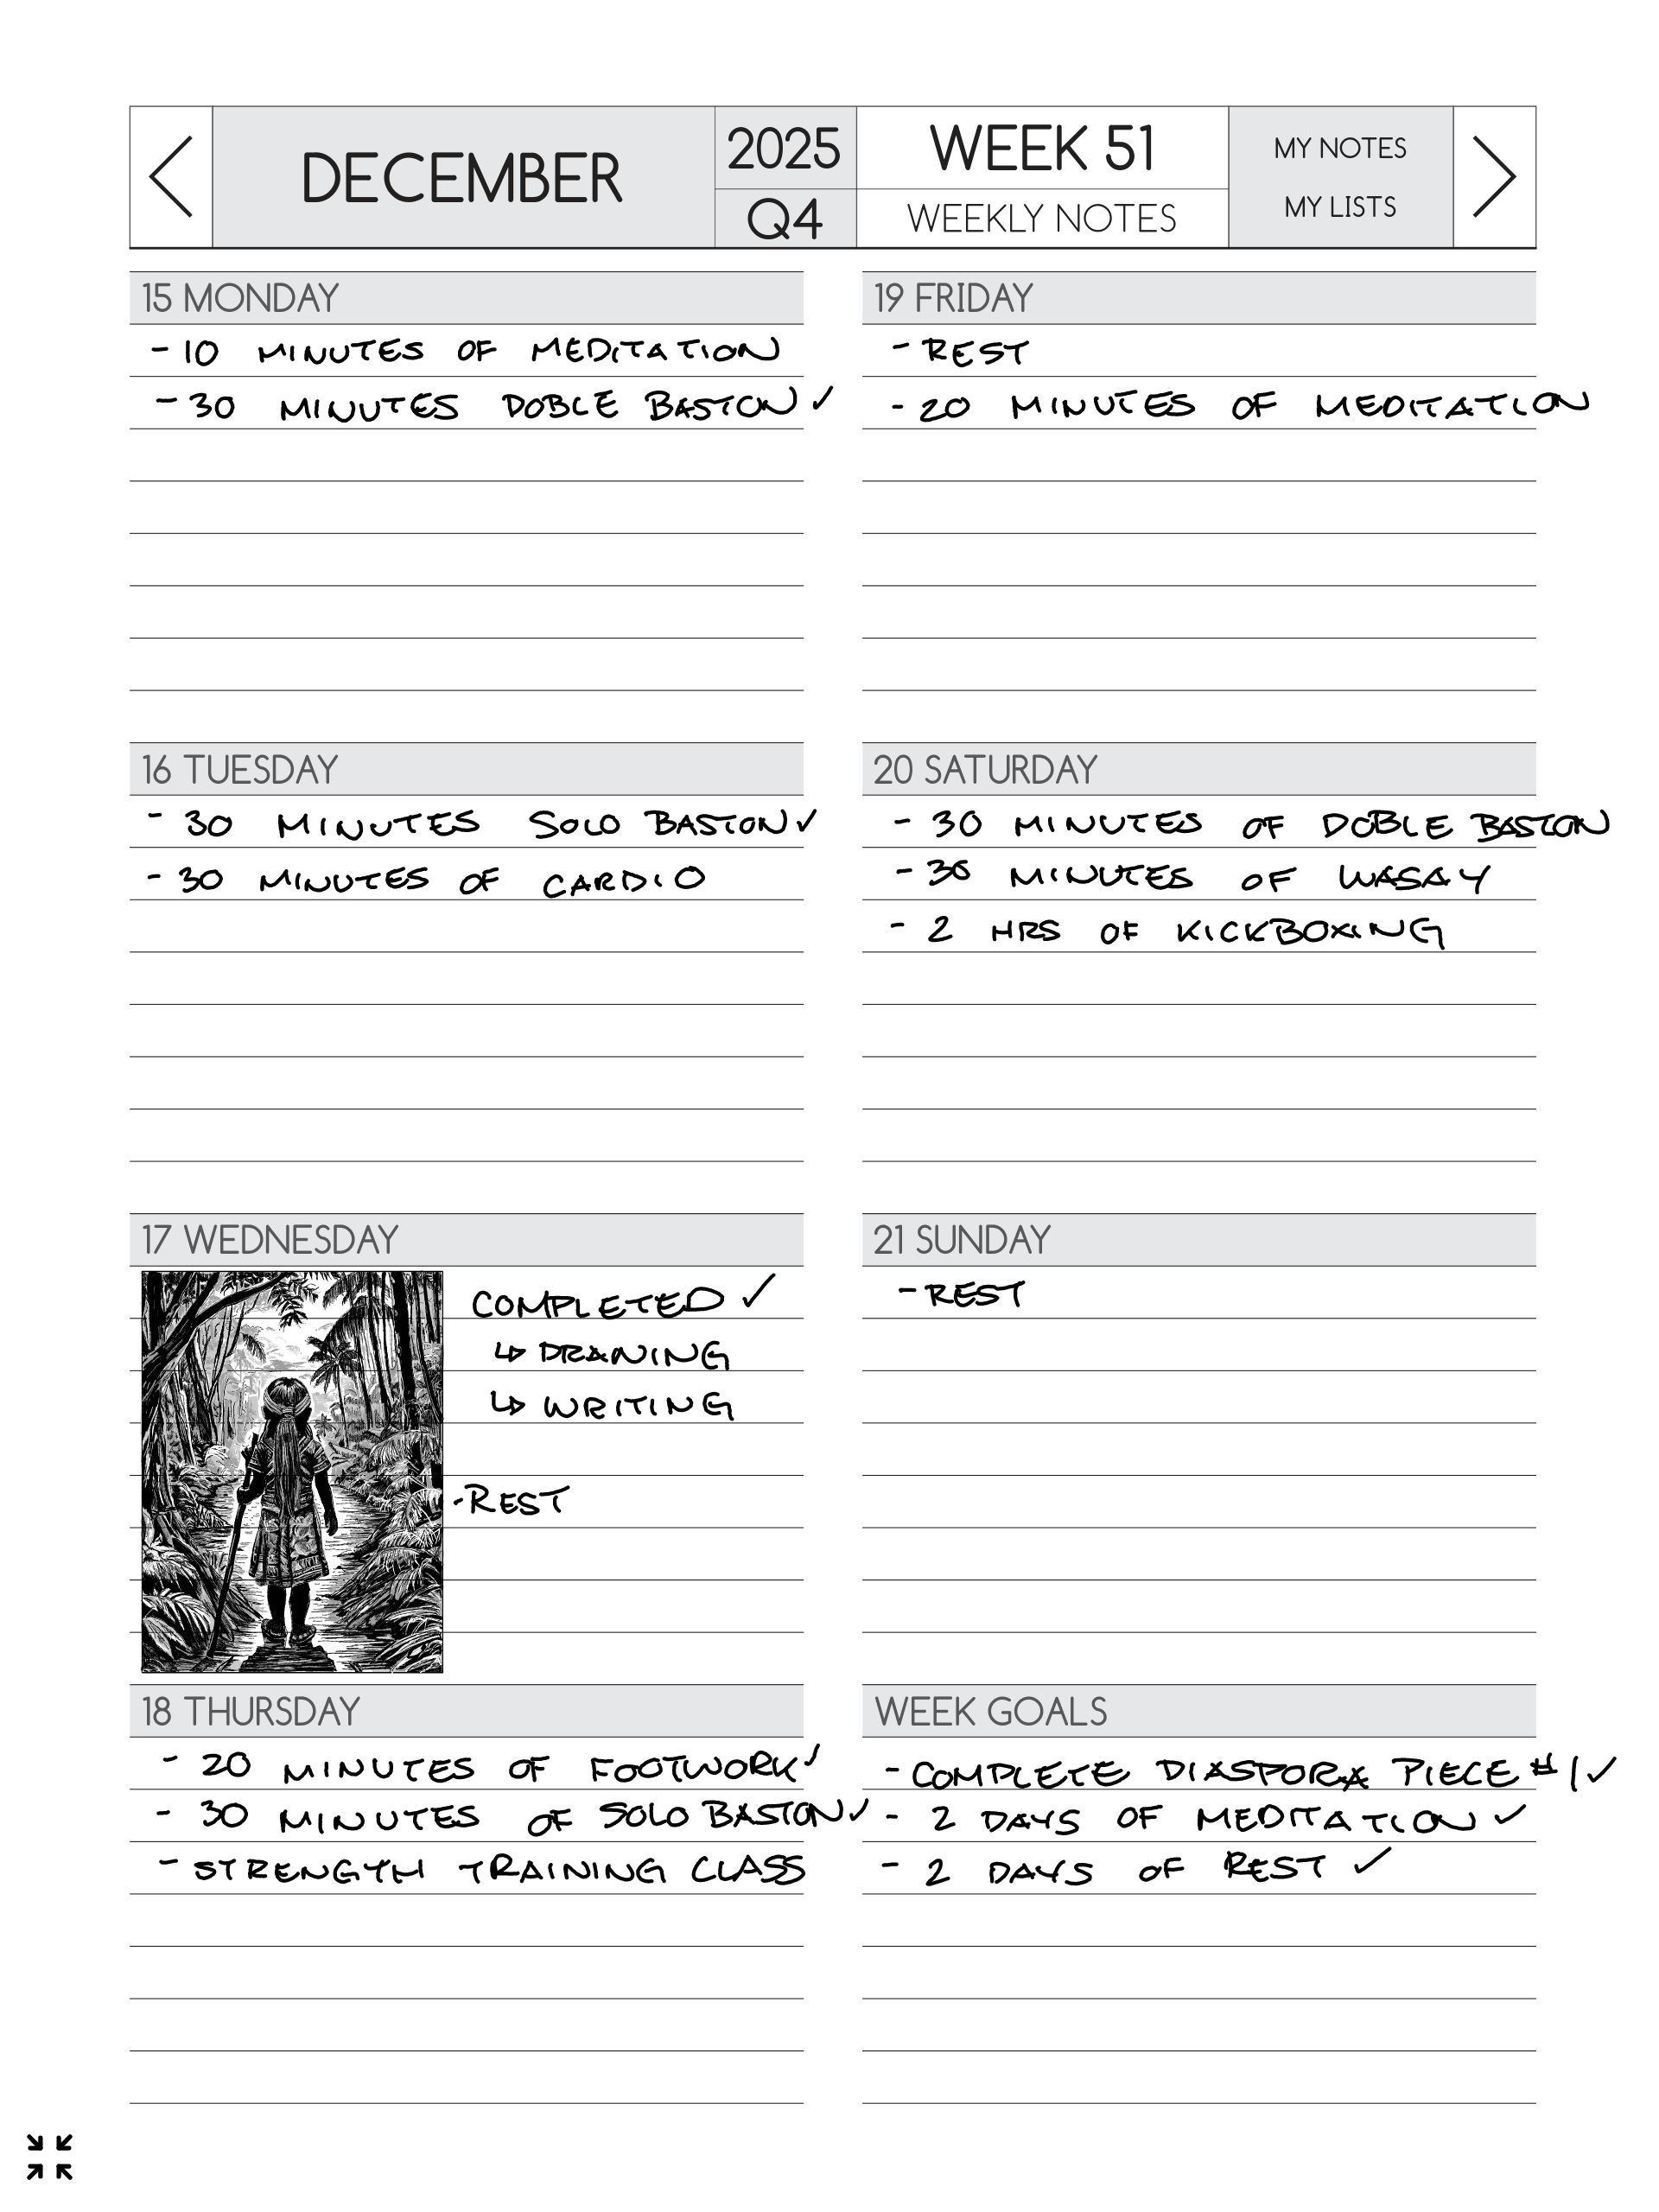 DECEMBER
2025
Q4
WEEK 51
WEEKLY NOTES
MY NOTES
MY LISTS
15 MONDAY
- 10 MINUTES OF MEDITATION
- 30 MINUTES DOBLE BASTON ✓
16 TUESDAY
- 30 MINUTES SOLO BASTON ✓
- 30 MINUTES OF CARDIO
17 WEDNESDAY
COMPLETED ✓
↳ DRAWING
↳ WRITING
- REST
18 THURSDAY
- 20 MINUTES OF FOOTWORK ✓
- 30 MINUTES OF SOLO BASTON ✓
- STRENGTH TRAINING CLASS
19 FRIDAY
- REST
- 20 MINUTES OF MEDITATION
20 SATURDAY
- 30 MINUTES OF DOBLE BASTON
- 30 MINUTES OF WASAY
- 2 HRS OF KICKBOXING
21 SUNDAY
- REST
WEEK GOALS
- COMPLETE DIASPORA PIECE #1 ✓
- 2 DAYS OF MEDITATION ✓
- 2 DAYS OF REST ✓